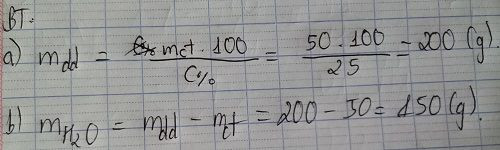 BT:
a) mdd = mct . 100 / C% = 50 . 100 / 25 = 200 (g)
b) mH2O = mdd - mct = 200 - 50 = 150 (g).